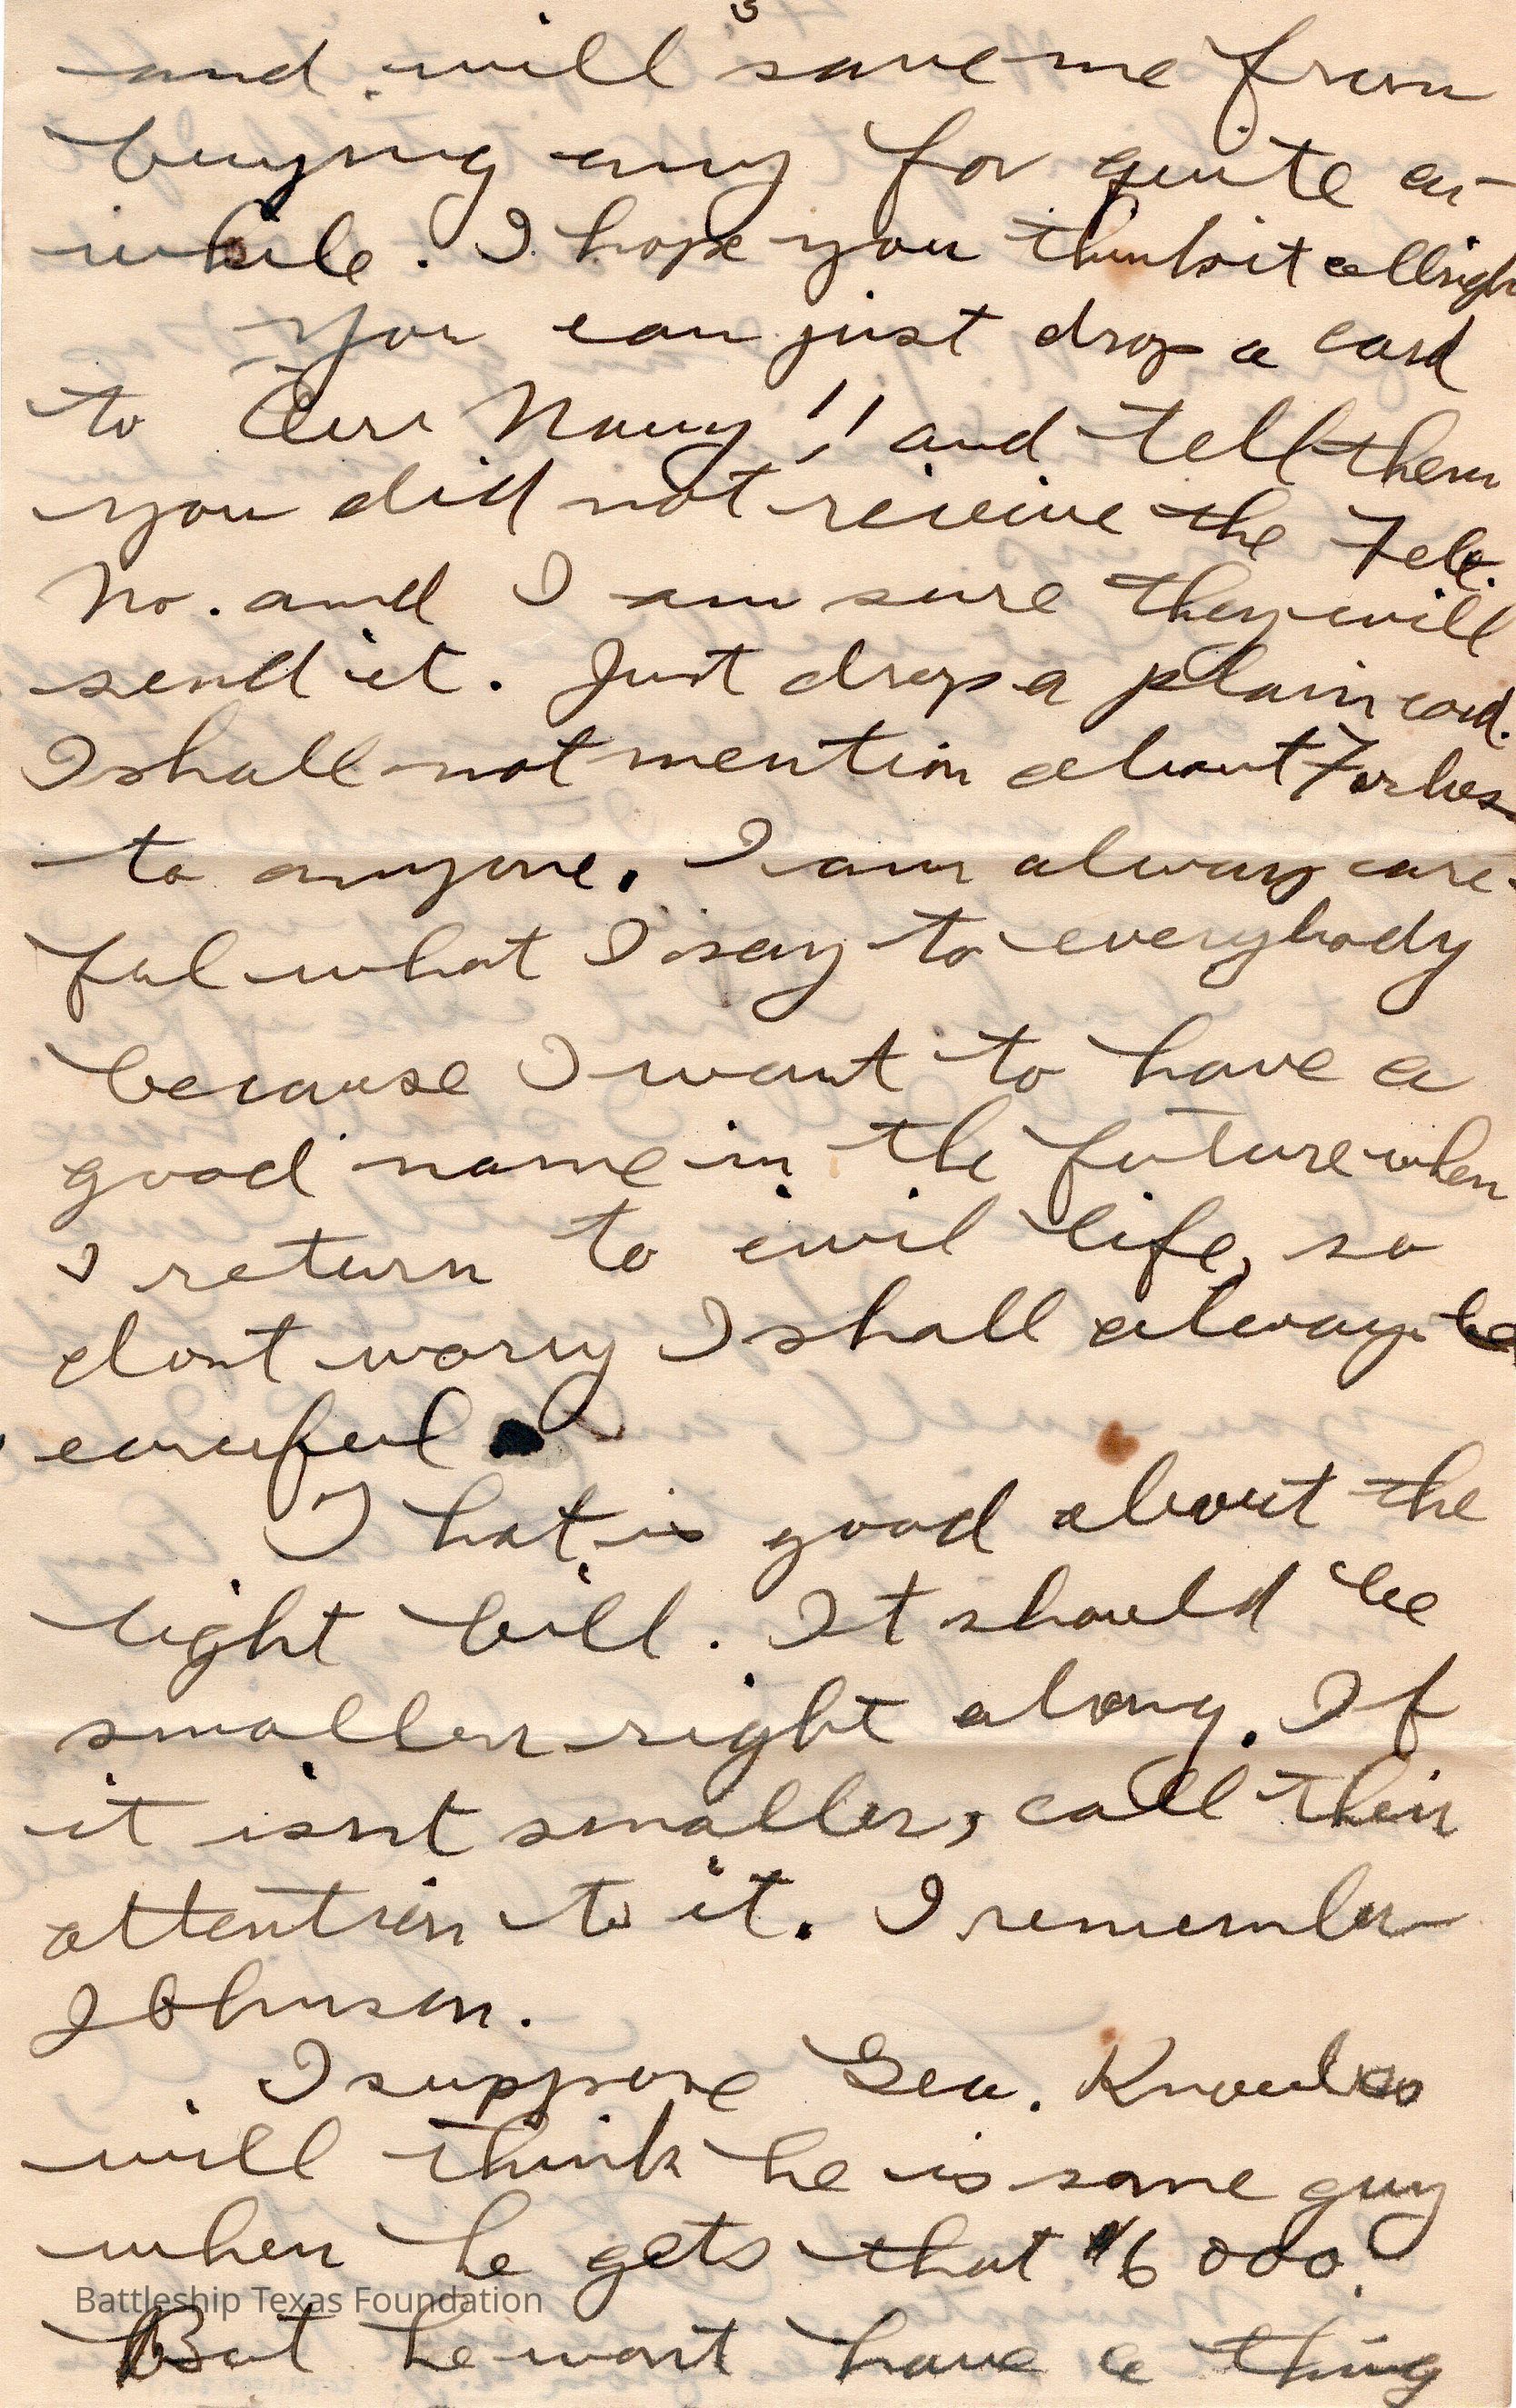 3
and will save me from
buying any for quite a-
while. I hope you think it allrigh
You can just drop a card
to "Our Navy", and tell them
you did not receive the Feb.
No. and I am sure they will
send it. Just drop a plain card.
I shall not mention about Forbes
to anyone. I am always care-
ful what I say to everybody
because I want to have a
good name in the future when
I return to civil life, so
dont worry I shall always be
careful
That is good about the
light bill. It should be
smaller right along. If
it isnt smaller, call their
attention to it. I remember
Johnson.
I suppose Geo. Knowles
will think he is some guy
when he gets that $6000.
But he wont have a thing
Battleship Texas Foundation